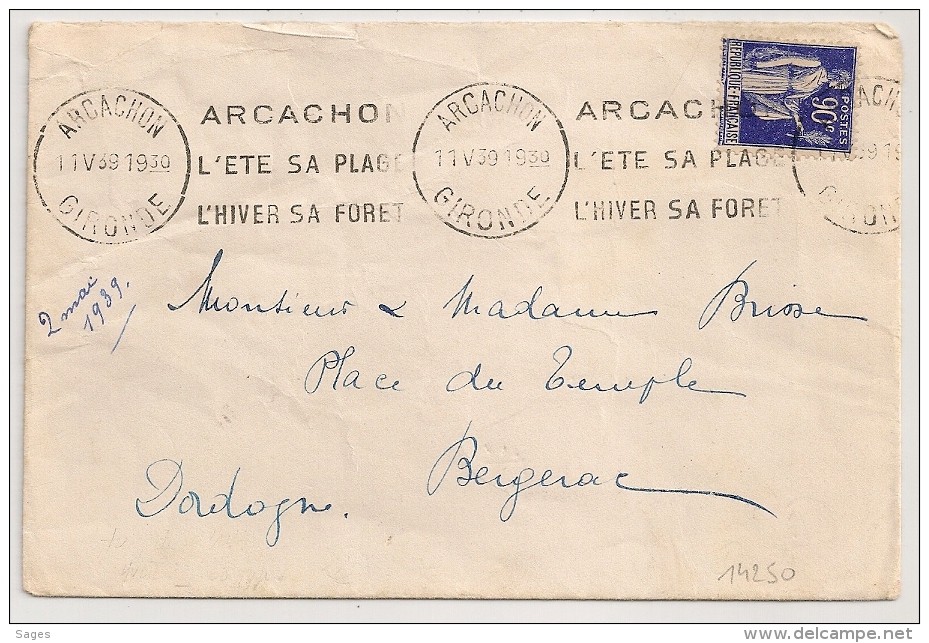 REPUBLIQUE-FRANCAISE
POSTES
90c
ARCACHON
11 V 39 19 30
GIRONDE
ARCACHON
L'ETE SA PLAGE
L'HIVER SA FORET
ARCACHON
11 V 39 19 30
GIRONDE
ARCACH
L'ETE SA PLAG
L'HIVER SA FORET
2 mai
1939.
Monsieur & Madame Brisse
Place du Temple
Bergerac
Dordogne.
14250
Sages
www.delcampe.net